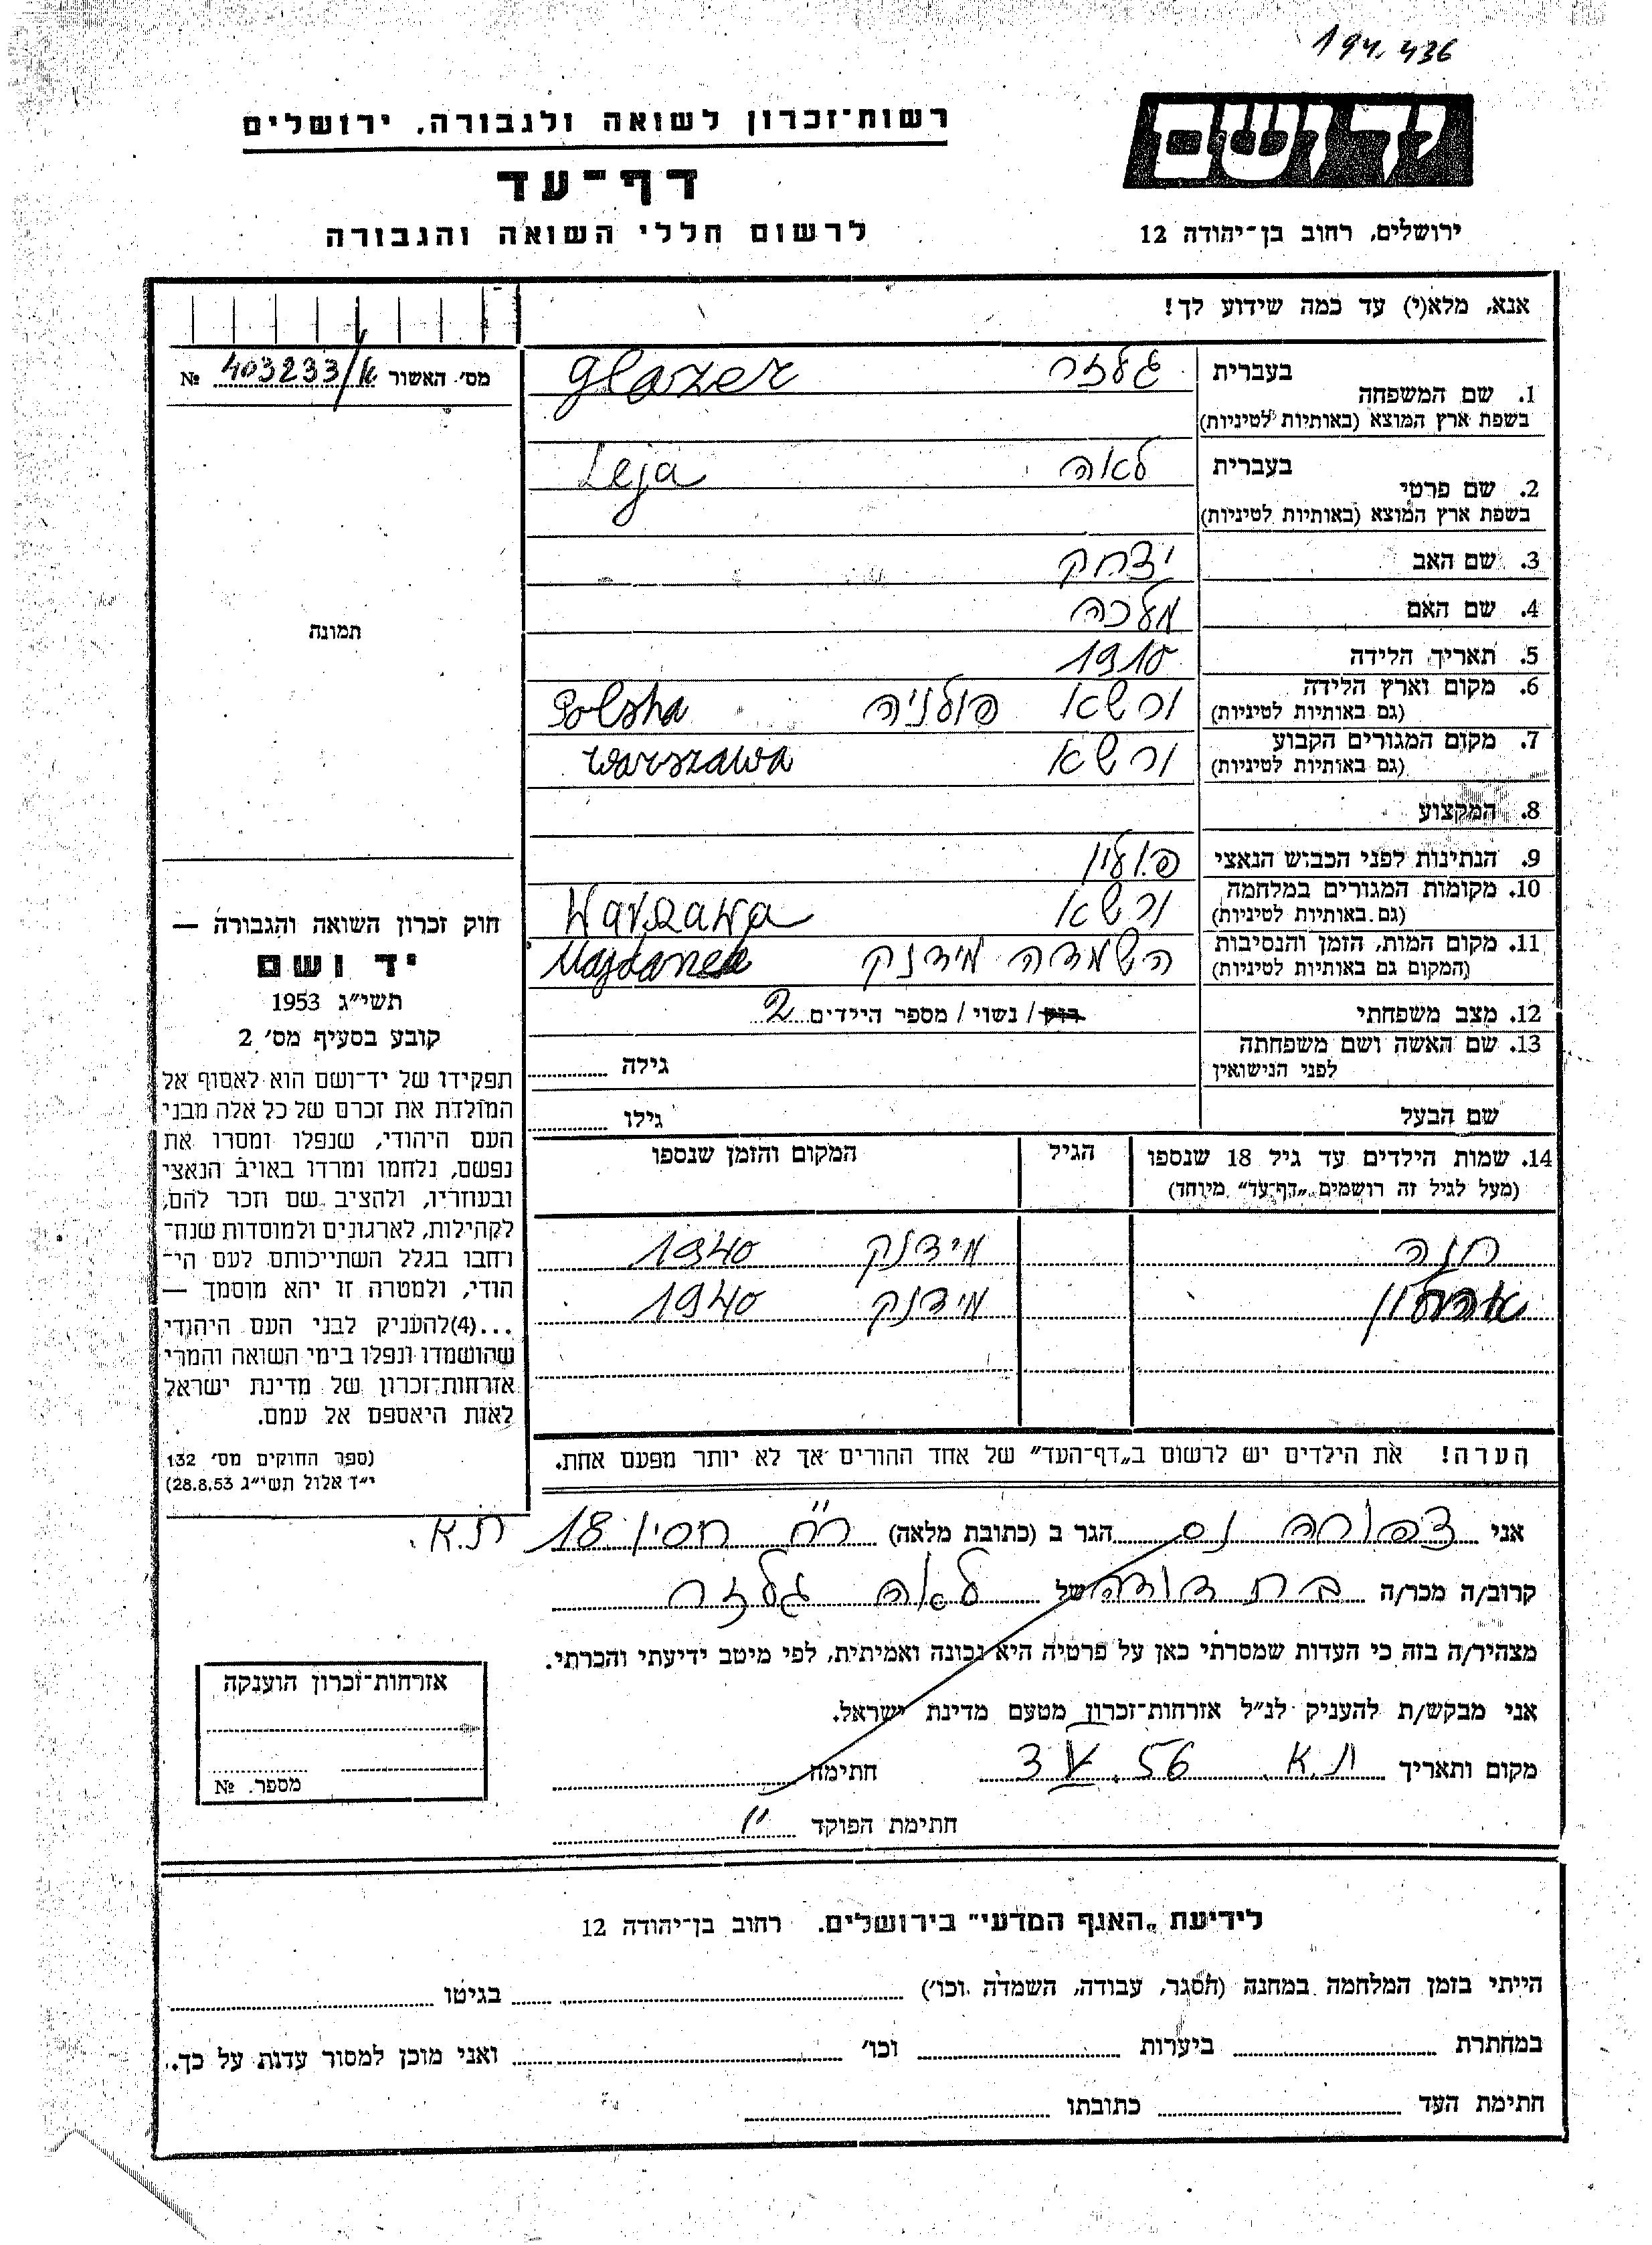 194.436
יד ושם
רשות־זכרון לשואה ולגבורה, ירושלים
דף־עד
לרשום חללי השואה והגבורה
ירושלים, רחוב בן־יהודה 12
אנא, מלא(י) עד כמה שידוע לך!
מס׳ האשור № 403233/
1. שם המשפחה
בעברית גלזר
בשפת ארץ המוצא (באותיות לטיניות) Glazer
2. שם פרטי
בעברית לאה
בשפת ארץ המוצא (באותיות לטיניות) Leja
3. שם האב יצחק
4. שם האם מלכה
תמונה
5. תאריך הלידה 1910
6. מקום וארץ הלידה ורשא פולניה Polska
(גם באותיות לטיניות)
7. מקום המגורים הקבוע ורשא Warszawa
(גם באותיות לטיניות)
8. המקצוע
9. הנתינות לפני הכבוש הנאצי פולין
10. מקומות המגורים במלחמה ורשא Warszawa
(גם באותיות לטיניות)
11. מקום המות, הזמן והנסיבות השמדה מידנק Majdanek
(המקום גם באותיות לטיניות)
12. מצב משפחתי רווק / נשוי / מספר היילדים 2
13. שם האשה ושם משפחתה
לפני הנישואין גילה
שם הבעל גילו
14. שמות הילדים עד גיל 18 שנספו הגיל המקום והזמן שנספו
(מעל לגיל זה רושמים „דף־עד״ מיוחד)
חנה מידנק 1940
מידנק 1940
הערה! את הילדים יש לרשום ב„דף־העד״ של אחד ההורים אך לא יותר מפעם אחת.
חוק זכרון השואה והגבורה —
יד ושם
תשי״ג 1953
קובע בסעיף מס׳ 2
תפקידו של יד־ושם הוא לאסוף אל
המולדת את זכרם של כל אלה מבני
העם היהודי, שנפלו ומסרו את
נפשם, נלחמו ומרדו באויב הנאצי
ובעוזריו, ולהציב שם וזכר להם,
לקהילות, לארגונים ולמוסדות שנח־
רחבו בגלל השתייכותם לעם הי־
הודי, ולמטרה זו יהא מוסמך —
...(4)להעניק לבני העם היהודי
שהושמדו ונפלו בימי השואה והמרי
אזרחות־זכרון של מדינת ישראל
לאות היאספם אל עמם.
(ספר החוקים מס׳ 132
י״ד אלול תשי״ג 28.8.53)
אני צפורה נס הגר ב (כתובת מלאה) רח׳ חסין 18 ת.א.
קרוב/ה מכר/ה בת דודה של לאה גלזר
מצהיר/ה בזה כי העדות שמסרתי כאן על פרטיה היא נכונה ואמיתית, לפי מיטב ידיעתי והכרתי.
אני מבקש/ת להעניק לנ״ל אזרחות־זכרון מטעם מדינת ישראל.
מקום ותאריך ת.א. 3 V 56. חתימה
חתימת הפוקד
אזרחות־זכרון הוענקה
מספר. №
לידיעת „האגף המדעי״ בירושלים. רחוב בן־יהודה 12
הייתי בזמן המלחמה במחנה (הסגר, עבודה, השמדה וכו׳) בגיטו
במחתרת ביערות וכו׳ ואני מוכן למסור עדות על כך.
חתימת העד כתובתו